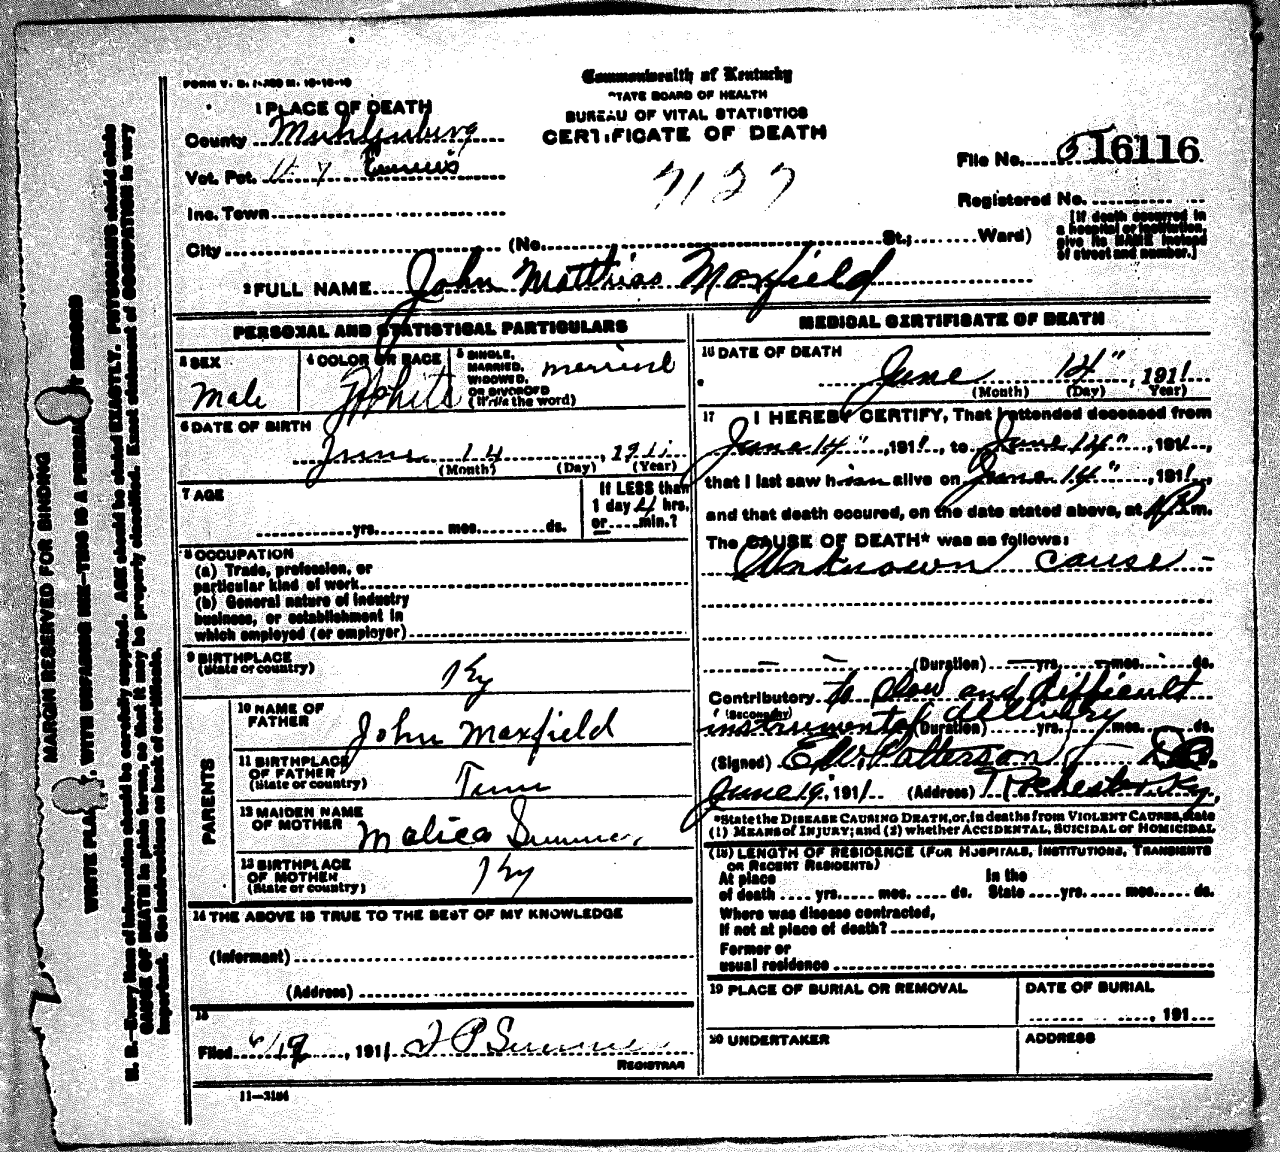 FORM V. S. 1-
Commonwealth of Kentucky
STATE BOARD OF HEALTH
BUREAU OF VITAL STATISTICS
CERTIFICATE OF DEATH
1 PLACE OF DEATH
County Muhlenburg
Vot. Pct. Ennis
Inc. Town
City (No. St.; Ward)
File No. 16116
Registered No.
[If death occurred in
a hospital or institution,
give its NAME instead
of street and number.]
7127
2 FULL NAME John Matthias Maxfield
PERSONAL AND STATISTICAL PARTICULARS
3 SEX
Male
4 COLOR OR RACE
White
5 SINGLE,
MARRIED,
WIDOWED,
OR DIVORCED
(Write the word)
6 DATE OF BIRTH
June 14, 1911
(Month) (Day) (Year)
7 AGE
yrs. mos. ds.
If LESS than
1 day 4 hrs.
or min.?
8 OCCUPATION
(a) Trade, profession, or
particular kind of work
(b) General nature of industry
business, or establishment in
which employed (or employer)
9 BIRTHPLACE
(State or country)
Ky
PARENTS
10 NAME OF
FATHER
John Maxfield
11 BIRTHPLACE
OF FATHER
(State or country)
Tenn
12 MAIDEN NAME
OF MOTHER
13 BIRTHPLACE
OF MOTHER
(State or country)
Ky
14 THE ABOVE IS TRUE TO THE BEST OF MY KNOWLEDGE
(Informant)
(Address)
15
Filed 6/19, 1911
REGISTRAR
11—3184
MEDICAL CERTIFICATE OF DEATH
16 DATE OF DEATH
June 14", 1911
(Month) (Day) (Year)
17 I HEREBY CERTIFY, That I attended deceased from
June 14", 1911, to June 14", 1911,
that I last saw him alive on June 14", 1911,
and that death occured, on the date stated above, at P m.
The CAUSE OF DEATH* was as follows:
Unknown cause
(Duration) yrs. mos. ds.
Contributory to slow and difficult
(SECONDARY)
instrumental delivery
(Duration) yrs. mos. ds.
(Signed) Patterson
June 19, 1911 (Address) Rochester Ky.
*State the DISEASE CAUSING DEATH, or, in deaths from VIOLENT CAUSES, state
(1) MEANS of INJURY; and (2) whether ACCIDENTAL, SUICIDAL or HOMICIDAL
(18) LENGTH OF RESIDENCE (FOR HOSPITALS, INSTITUTIONS, TRANSIENTS
OR RECENT RESIDENTS)
At place
of death yrs. mos. ds.
In the
State yrs. mos. ds.
Where was disease contracted,
If not at place of death?
Former or
usual residence
19 PLACE OF BURIAL OR REMOVAL
DATE OF BURIAL
, 191
20 UNDERTAKER
ADDRESS
MARGIN RESERVED FOR BINDING
WRITE PLA WITH UNFADING INK—THIS IS A PERMA T RECORD
N. B.—Every item of information should be carefully supplied. AGE should be stated EXACTLY. PHYSICIANS should state
CAUSE OF DEATH in plain terms, so that it may be properly classified. Exact statement of OCCUPATION is very
important. See instructions on back of certificate.